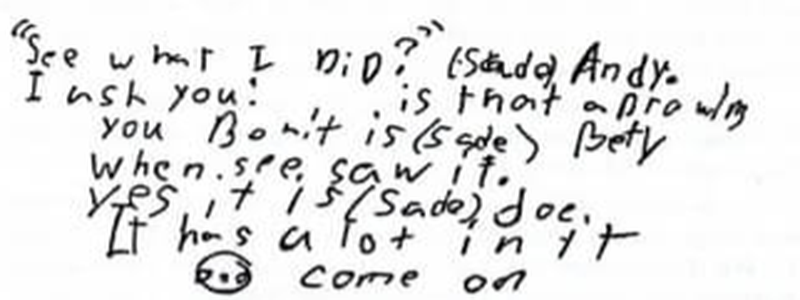 "See what I DiD?" (Sade) Andy.
I ask you! is that a Drawing
you Don't is (sade) Bety
when. see. saw it.
yes it is (Sade) Joe.
It has a lot in it
come on